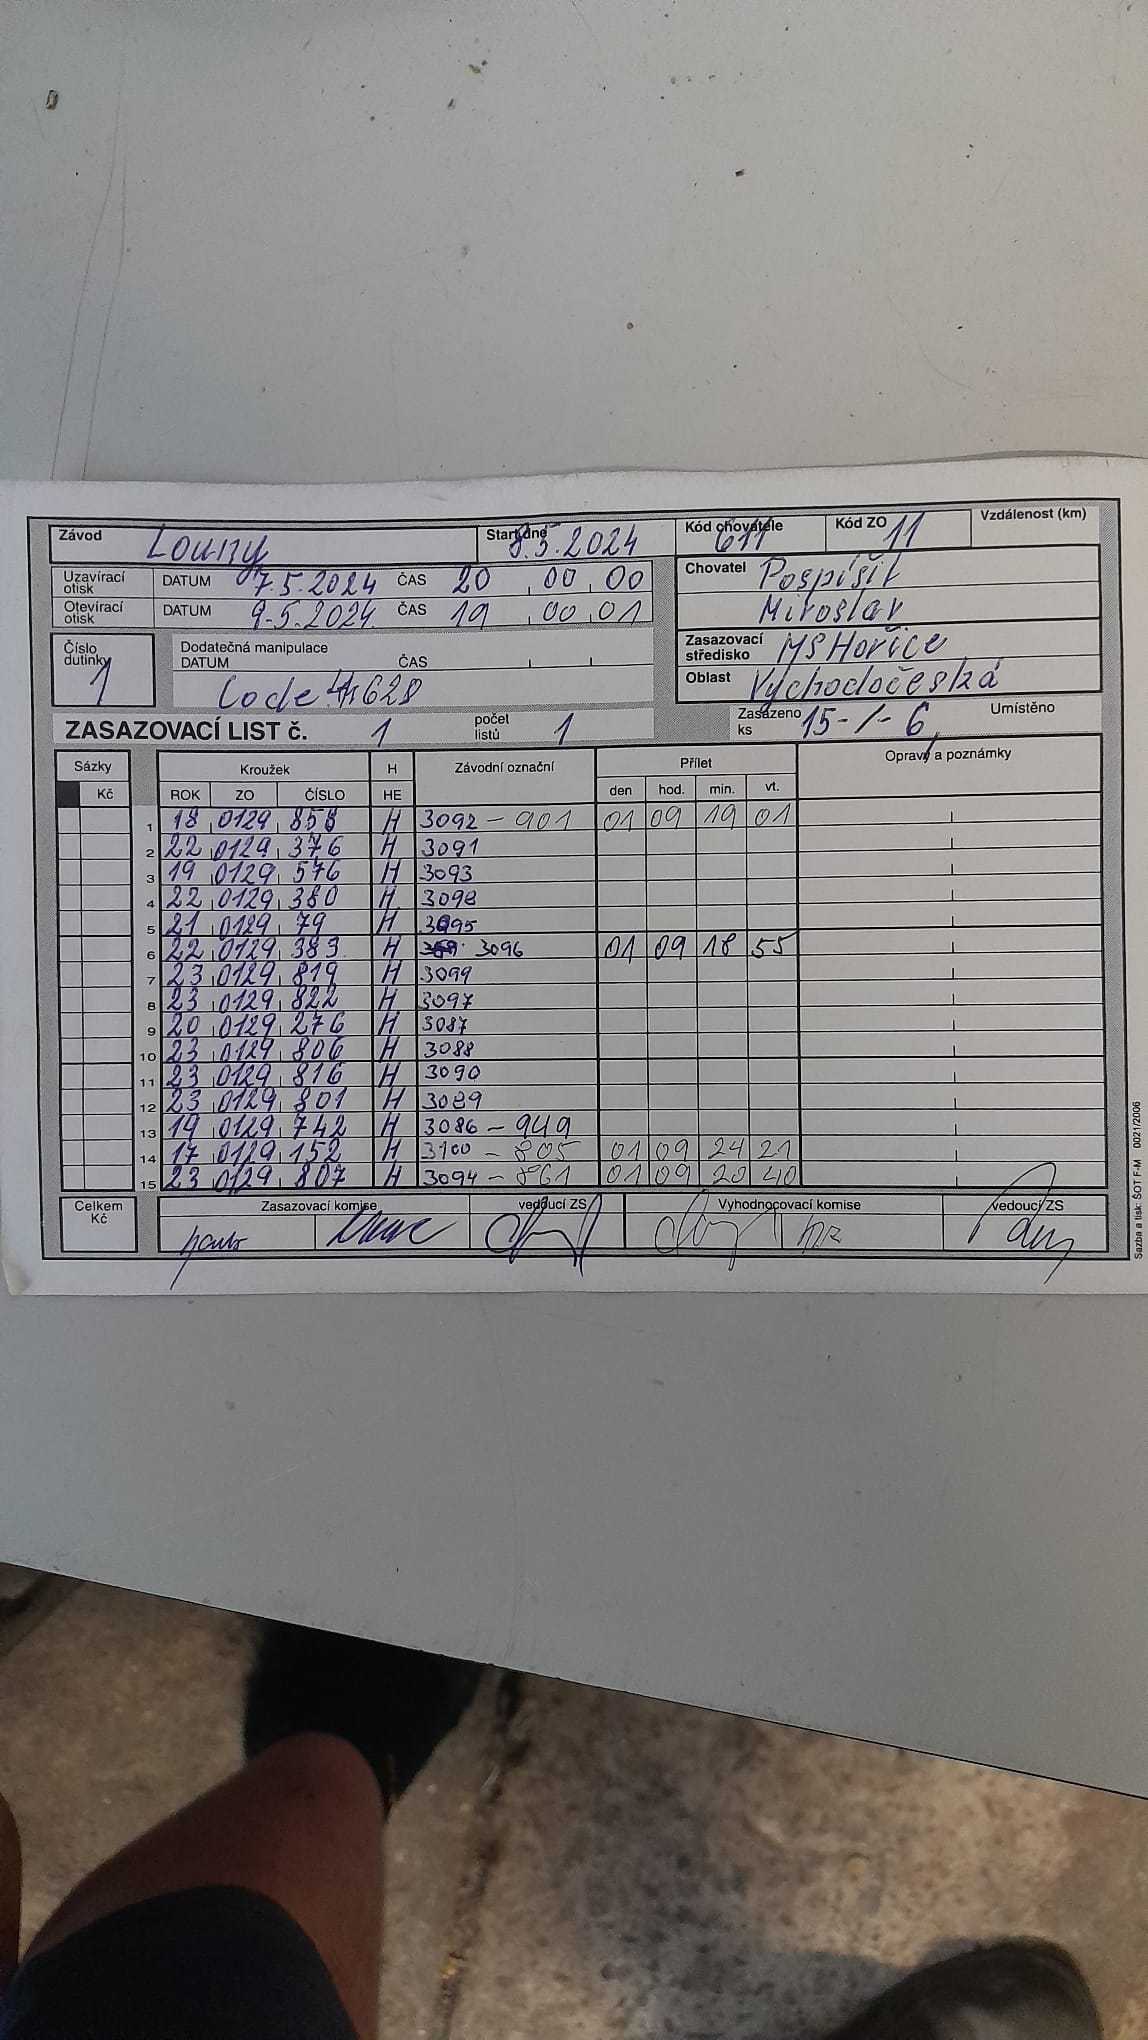 Závod Louny Start dne 8.5.2024 Kód chovatele 611 Kód ZO 11 Vzdálenost (km)
Uzavírací otisk DATUM 7.5.2024 ČAS 20 00 00 Chovatel Pospíšil
Otevírací otisk DATUM 9.5.2024 ČAS 19 00 01 Miroslav
Číslo dutinky 1 Dodatečná manipulace DATUM ČAS Zasazovací středisko MS Hořice
Code 628 Oblast Východočeská
ZASAZOVACÍ LIST č. 1 počet listů 1 Zasazeno ks 15-1-6 Umístěno
Sázky Kroužek H Závodní označní Přílet Opravy a poznámky
Kč ROK ZO ČÍSLO HE den hod. min. vt.
1 18 0129 858 H 3092 - 901 01 09 19 01
2 22 0129 376 H 3091
3 19 0129 576 H 3093
4 22 0129 380 H 3098
5 21 0129 79 H 3095
6 22 0129 383 H 3096 01 09 18 55
7 23 0129 819 H 3099
8 23 0129 822 H 3097
9 20 0129 276 H 3087
10 23 0129 806 H 3088
11 23 0129 816 H 3090
12 23 0129 801 H 3089
13 19 0129 742 H 3086 - 949
14 17 0129 152 H 3100 - 805 01 09 24 21
15 23 0129 807 H 3094 - 861 01 09 20 40
Celkem Kč Zasazovací komise vedoucí ZS Vyhodnocovací komise vedoucí ZS
Sazba a tisk: ŠOT F-M 0021/2006